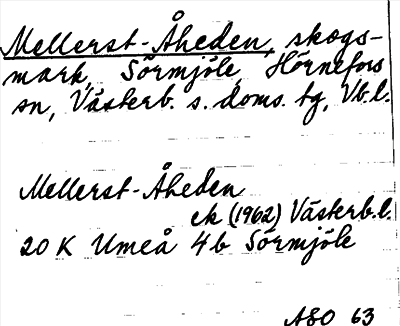 Mellerst-Åheden, skogs-
mark, Sörmjöle, Hörnefors
sn, Västerb. s. doms. tg, Vb.l.
Mellerst-Åheden
ek (1962) Västerb.l.
20 K Umeå 4b Sörmjöle
ASO 63